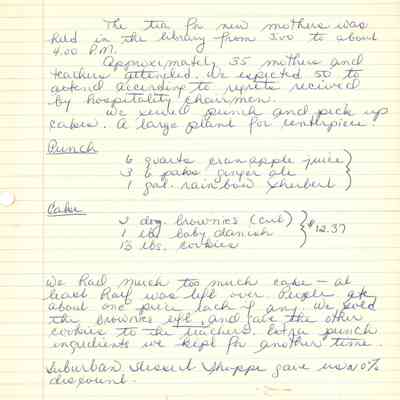 The tea for new mothers was
held in the library from 3:00 to about
4:00 P.M.
Approximately 35 mothers and
teachers attended. We expected 50 to
attend according to regrets received
by hospitality chairmen.
We served punch and pick up
cakes. A large plant for centerpiece.
Punch
6 quarts cranapple juice
3 6 paks ginger ale
1 gal. rainbow sherbert
Cake
doz. brownies (cut)
1 lbs baby danish
lbs. cookies
$12.37
We had much too much cake - at
least half was left over. People ate
about one piece each if any. We sold
the brownies left and gave the other
cookies to the teachers. Extra punch
ingredients we kept for another time.
Suburban Dessert Shoppe gave us 10%
discount.